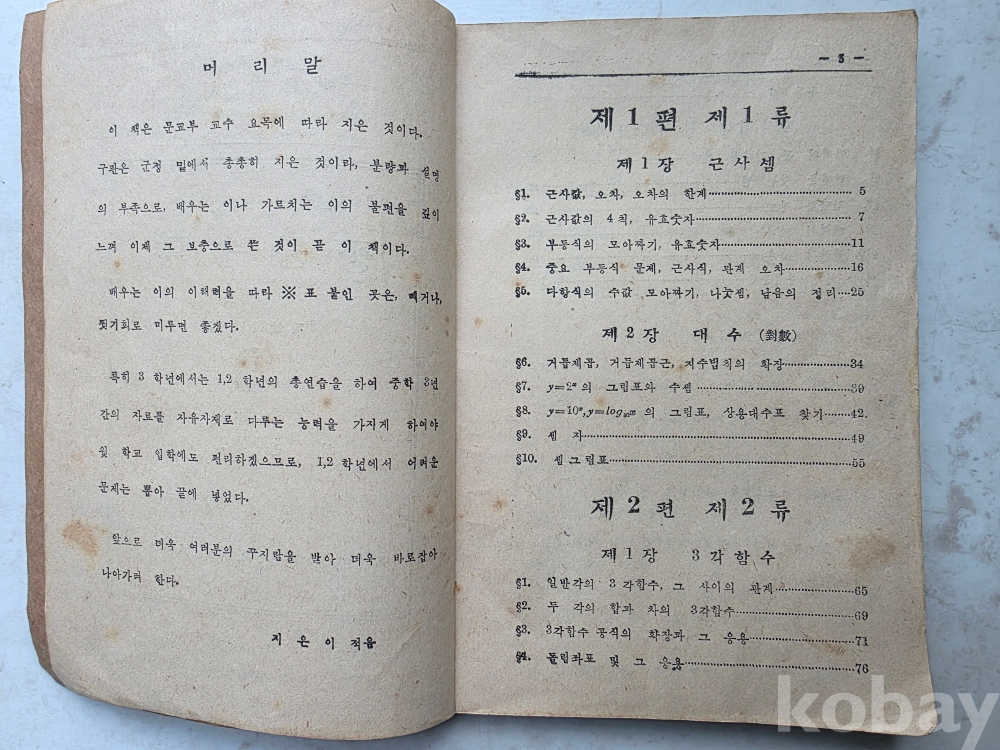 머 리 말
이 책은 문교부 교수 요목에 따라 지은 것이다.
구판은 군정 밑에서 총총히 지은 것이라, 분량과 설명
의 부족으로, 배우는 이나 가르치는 이의 불편을 깊이
느껴 이제 그 보충으로 쓴 것이 곧 이 책이다.
배우는 이의 이해력을 따라 ※ 표 붙인 곳은, 빼거나,
뒷기회로 미루면 좋겠다.
특히 3 학년에서는 1,2 학년의 총연습을 하여 중학 3년
간의 자료를 자유자재로 다루는 능력을 가지게 하여야
윗 학교 입학에도 편리하겠으므로, 1,2 학년에서 어려운
문제는 뽑아 끝에 넣었다.
앞으로 더욱 여러분의 꾸지람을 받아 더욱 바로잡아
나아가려 한다.
지 은 이 적음
— 3 —
제 1 편 제 1 류
제 1 장 근 사 셈
§1. 근사값, 오차, 오차의 한계 5
§2. 근사값의 4 칙, 유효숫자 7
§3. 부등식의 모아짜기, 유효숫자 11
§4. 중요 부등식 문제, 근사식, 관계 오차 16
§5. 다항식의 수값 모아짜기, 나눗셈, 남음의 정리 25
제 2 장 대 수 (對數)
§6. 거듭제곱, 거듭제곱근, 지수법칙의 확장 34
§7. y=2ˣ 의 그림표와 수셈 39
§8. y=10ˣ, y=log₁₀x 의 그림표, 상용대수표 찾기 42
§9. 셈 자 49
§10. 셈그림표 55
제 2 편 제 2 류
제 1 장 3 각 함 수
§1. 일반각의 3 각함수, 그 사이의 관계 65
§2. 두 각의 합과 차의 3각함수 69
§3. 3각함수 공식의 확장과 그 응용 71
§4. 돌림좌표 및 그 응용 76
kobay